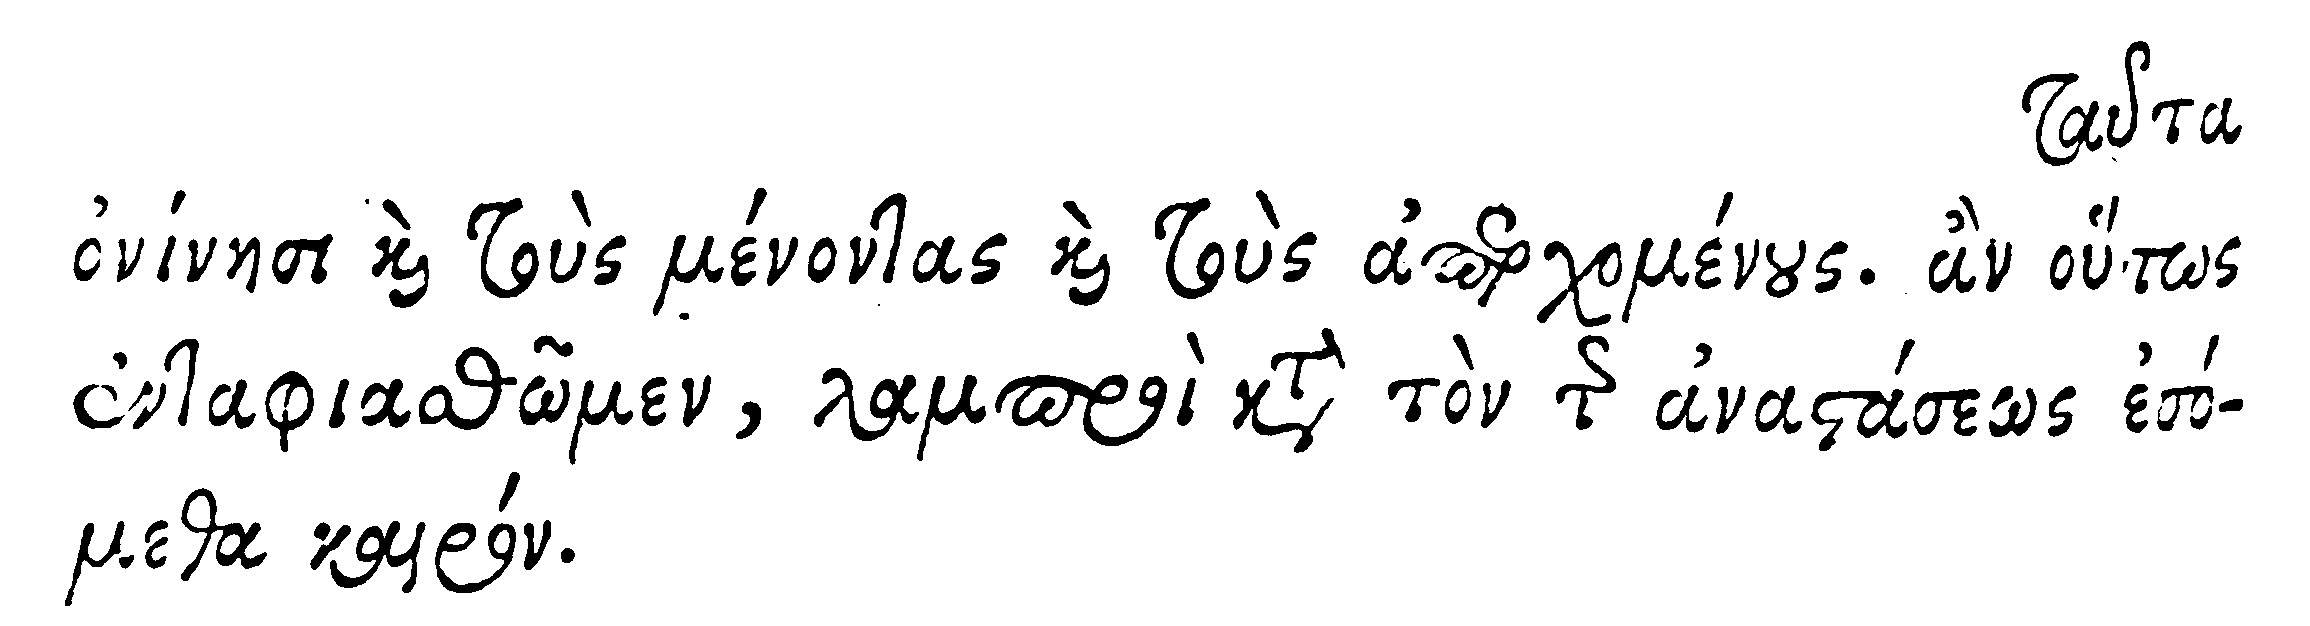 ταῦτα
ὀνίνησι καὶ τοὺς μένοντας καὶ τοὺς ἀπερχομένους. ἂν οὕτως
ἐνταφιασθῶμεν, λαμπροὶ κατὰ τὸν τῆς ἀναστάσεως ἐσό-
μεθα καιρόν.